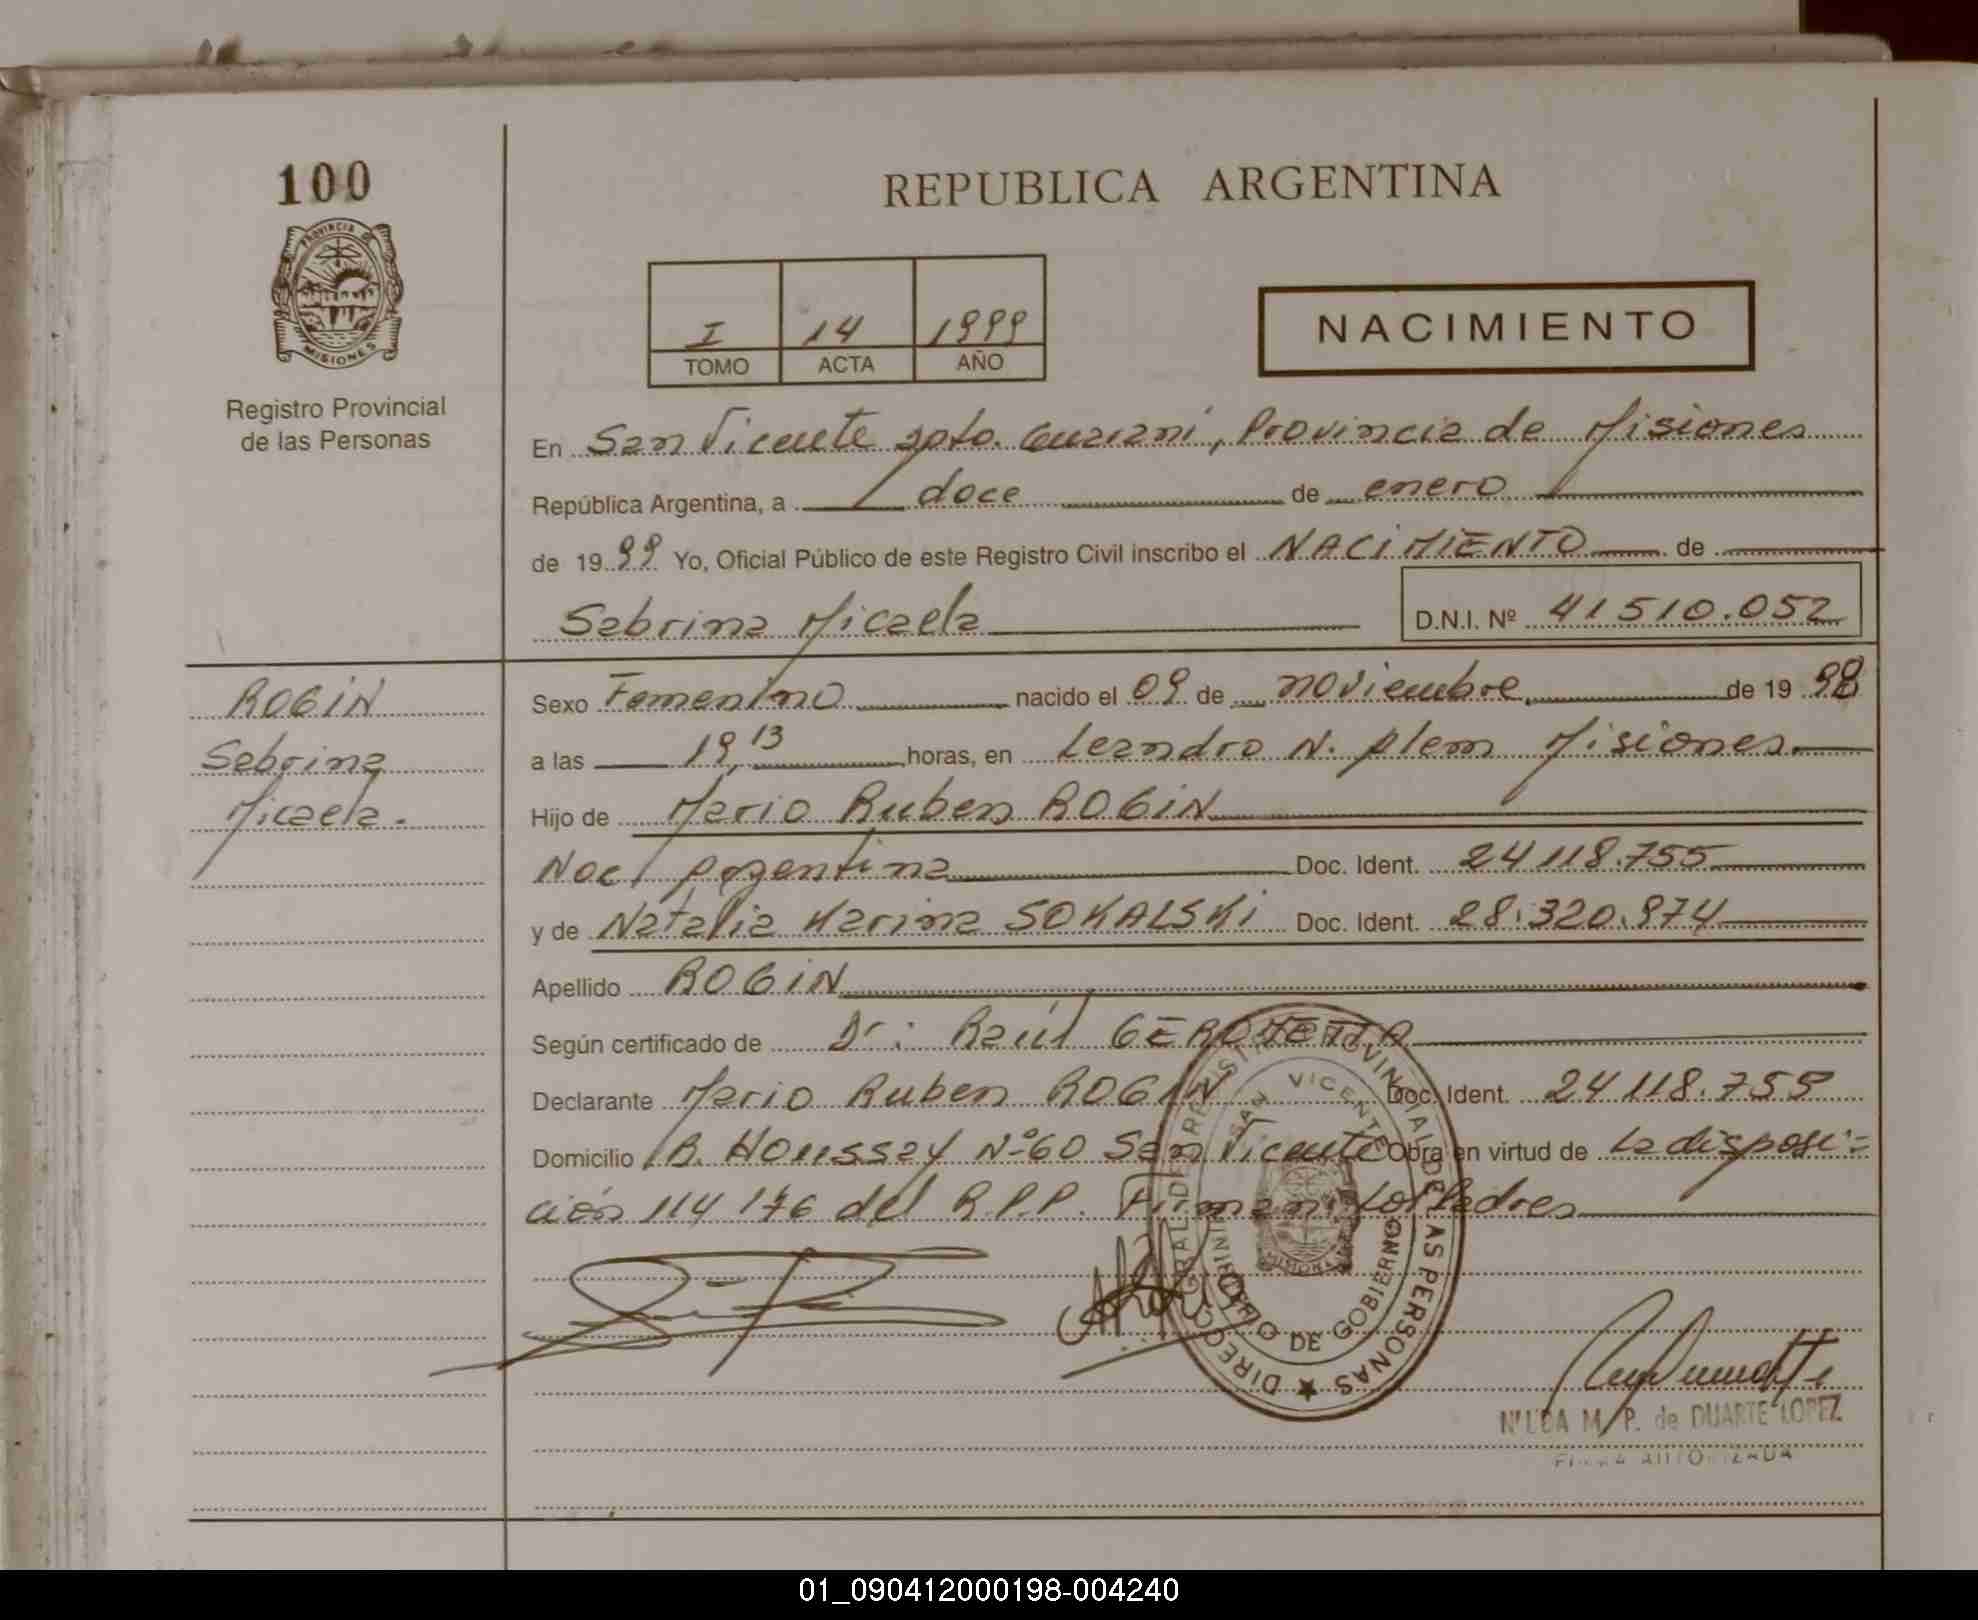 100
PROVINCIA DE
MISIONES
Registro Provincial
de las Personas
REPUBLICA ARGENTINA
I 14 1999
TOMO ACTA AÑO
NACIMIENTO
En San Vicente Dpto. Guarani, Provincia de Misiones
República Argentina, a doce de enero
de 1999 Yo, Oficial Público de este Registro Civil inscribo el NACIMIENTO de
Sabrina Micaela D.N.I. Nº 41510.052
ROGIN
Sabrina
Micaela.
Sexo Femenino nacido el 09 de noviembre de 1998
a las 19,13 horas, en Leandro N. Alem Misiones.
Hijo de Mario Ruben ROGIN
Nac/ Argentina Doc. Ident. 24118.755
y de Natalia Karina SOKALSKi Doc. Ident. 28.320.974
Apellido ROGiN
Según certificado de Dr: Raúl GEROMETTA
Declarante Mario Ruben ROGIN Doc. Ident. 24118.755
Domicilio B. Houssay Nº60 San Vicente Obra en virtud de la disposi=
ción 114/76 del R.P.P. Firman los Padres
DIRECC. GRAL. DEL REGISTRO PROVINCIAL DE LAS PERSONAS
SAN VICENTE
MINISTERIO DE GOBIERNO
MISIONES
NILDA M. P. de DUARTE LOPEZ
FIRMA AUTORIZADA
01_090412000198-004240